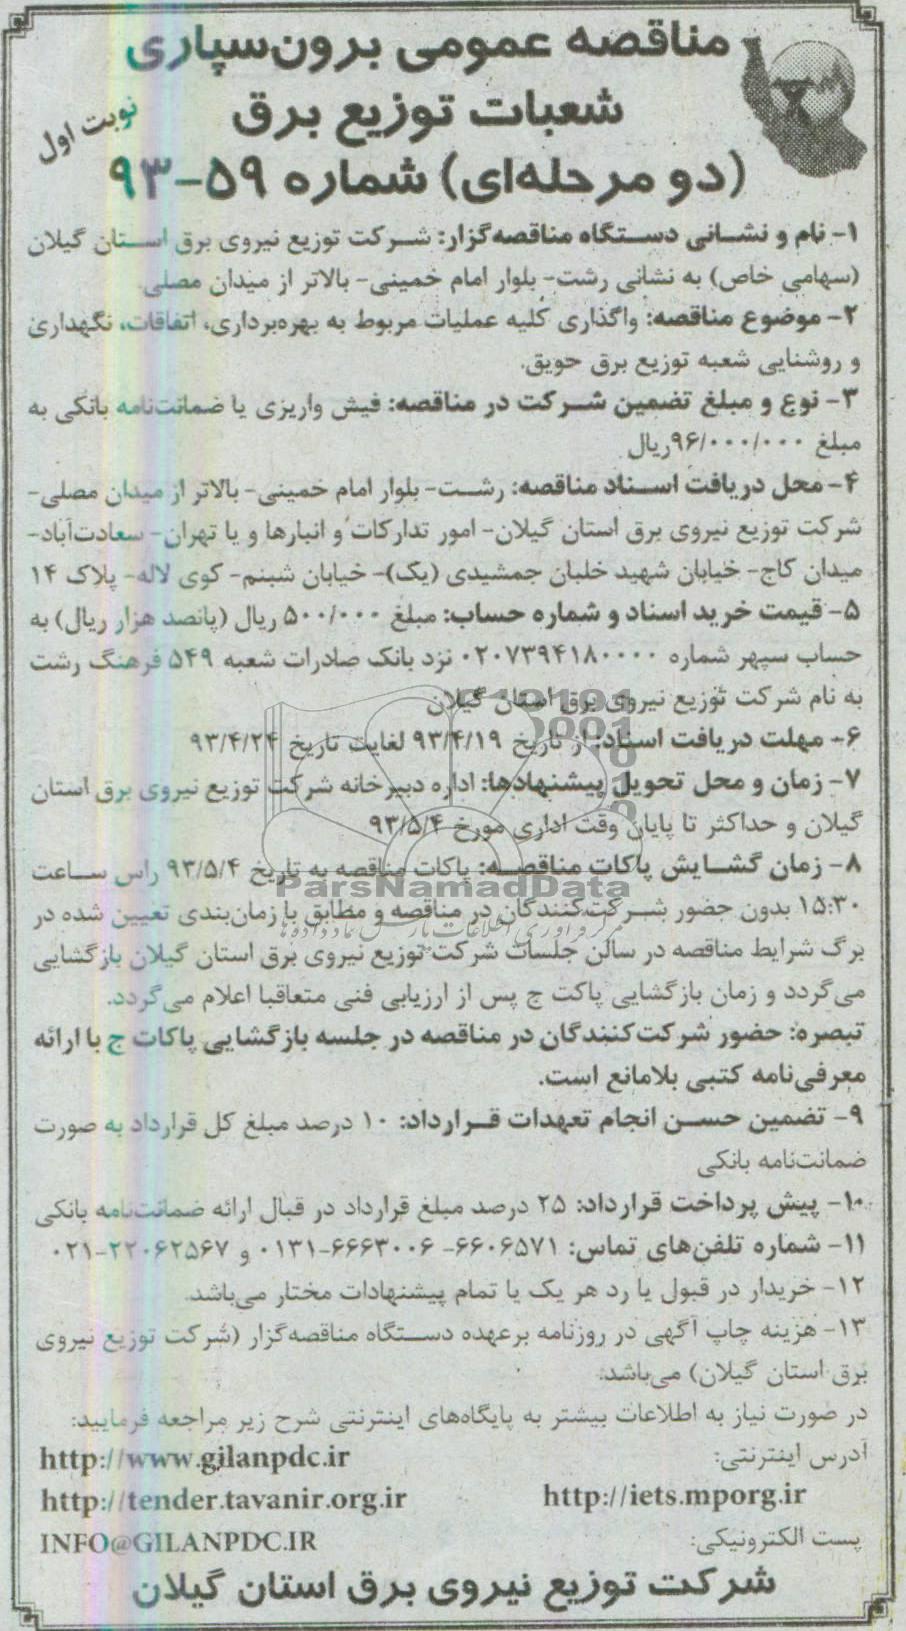 مناقصه عمومی برون‌سپاری
شعبات توزیع برق
نوبت اول
(دو مرحله‌ای) شماره ۵۹-۹۳
۱- نام و نشانی دستگاه مناقصه‌گزار: شرکت توزیع نیروی برق استان گیلان
(سهامی خاص) به نشانی رشت- بلوار امام خمینی- بالاتر از میدان مصلی.
۲- موضوع مناقصه: واگذاری کلیه عملیات مربوط به بهره‌برداری، اتفاقات، نگهداری
و روشنایی شعبه توزیع برق حویق.
۳- نوع و مبلغ تضمین شرکت در مناقصه: فیش واریزی یا ضمانت‌نامه بانکی به
مبلغ ۹۶/۰۰۰/۰۰۰ریال
۴- محل دریافت اسناد مناقصه: رشت- بلوار امام خمینی- بالاتر از میدان مصلی-
شرکت توزیع نیروی برق استان گیلان- امور تدارکات و انبارها و یا تهران- سعادت‌آباد-
میدان کاج- خیابان شهید خلبان جمشیدی (یک)- خیابان شبنم- کوی لاله- پلاک ۱۴
۵- قیمت خرید اسناد و شماره حساب: مبلغ ۵۰۰/۰۰۰ ریال (پانصد هزار ریال) به
حساب سپهر شماره ۰۲۰۷۳۹۴۱۸۰۰۰۰ نزد بانک صادرات شعبه ۵۴۹ فرهنگ رشت
به نام شرکت توزیع نیروی برق استان گیلان
۶- مهلت دریافت اسناد: از تاریخ ۹۳/۴/۱۹ لغایت تاریخ ۹۳/۴/۲۴
۷- زمان و محل تحویل پیشنهادها: اداره دبیرخانه شرکت توزیع نیروی برق استان
گیلان و حداکثر تا پایان وقت اداری مورخ ۹۳/۵/۴
۸- زمان گشایش پاکات مناقصه: پاکات مناقصه به تاریخ ۹۳/۵/۴ راس ساعت
ParsNamadData
۱۵:۳۰ بدون حضور شرکت‌کنندگان در مناقصه و مطابق با زمان‌بندی تعیین شده در
برگ شرایط مناقصه در سالن جلسات شرکت توزیع نیروی برق استان گیلان بازگشایی
می‌گردد و زمان بازگشایی پاکت ج پس از ارزیابی فنی متعاقبا اعلام می‌گردد.
تبصره: حضور شرکت‌کنندگان در مناقصه در جلسه بازگشایی پاکات ج با ارائه
معرفی‌نامه کتبی بلامانع است.
۹- تضمین حسن انجام تعهدات قرارداد: ۱۰ درصد مبلغ کل قرارداد به صورت
ضمانت‌نامه بانکی
۱۰- پیش پرداخت قرارداد: ۲۵ درصد مبلغ قرارداد در قبال ارائه ضمانت‌نامه بانکی
۱۱- شماره تلفن‌های تماس: ۶۶۰۶۵۷۱- ۶۶۶۳۰۰۶-۰۱۳۱ و ۲۲۰۶۲۵۶۷-۰۲۱
۱۲- خریدار در قبول یا رد هر یک یا تمام پیشنهادات مختار می‌باشد.
۱۳- هزینه چاپ آگهی در روزنامه برعهده دستگاه مناقصه‌گزار (شرکت توزیع نیروی
برق استان گیلان) می‌باشد.
در صورت نیاز به اطلاعات بیشتر به پایگاه‌های اینترنتی شرح زیر مراجعه فرمایید:
آدرس اینترنتی: http://www.gilanpdc.ir
http://iets.mporg.ir http://tender.tavanir.org.ir
پست الکترونیکی: INFO@GILANPDC.IR
شرکت توزیع نیروی برق استان گیلان